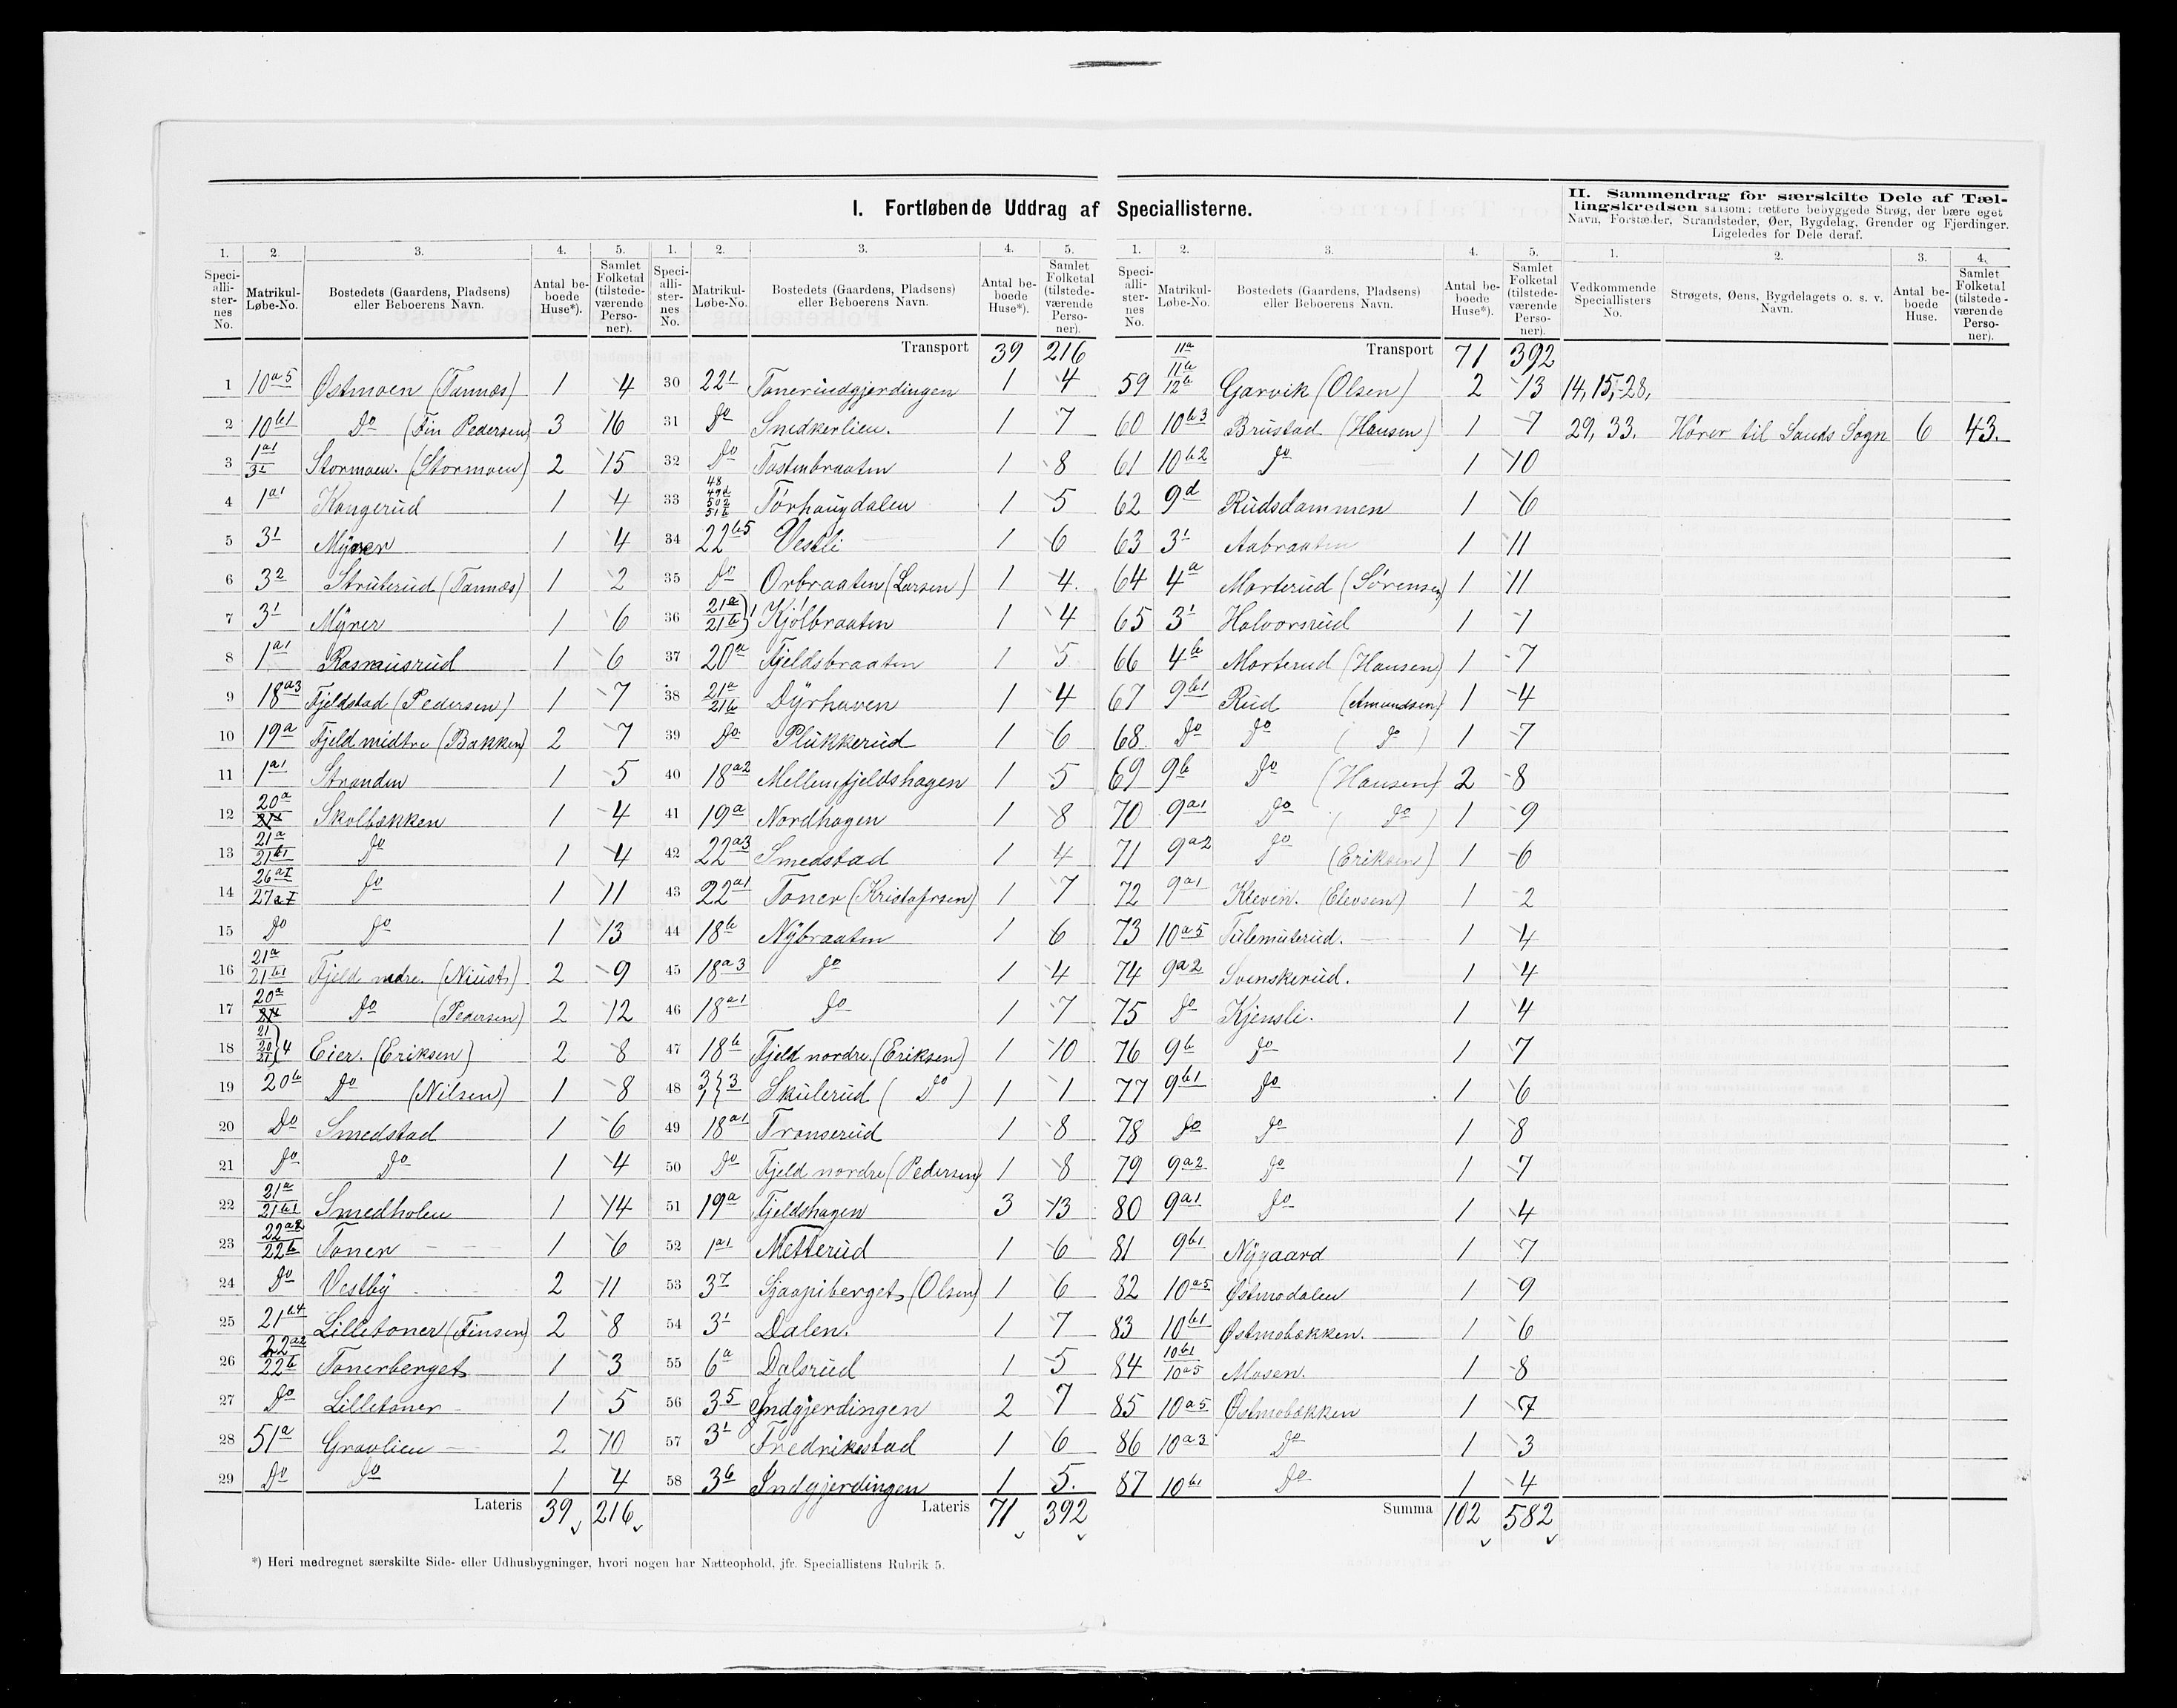 I. Fortløbende Uddrag af Speciallisterne.
II. Sammendrag for særskilte Dele af Tællingskredsen saasom: tættere bebyggede Strøg, der bære eget
Navn, Forstæder, Strandsteder, Øer, Bygdelag, Grender og Fjerdinger.
Ligeledes for Dele deraf.
1. 2. 3. 4. 5.
Speciallisternes No. Matrikul-Løbe-No. Bostedets (Gaardens, Pladsens) eller Beboerens Navn. Antal beboede Huse*). Samlet Folketal (tilstedeværende Personer).
1 10a5 Østmoen (Tannæs) 1 4
2 10b1 Do (Fin Pedersen) 3 16
3 1a1 3 1 Stormoen. (Stormoen) 2 15
4 1a1 Kongerud 1 4
5 3 1 Myrer 1 4
6 3 2 Struterud (Tannæs) 1 2
7 3 1 Myrer 1 6
8 1a1 Rasmusrud 1 6
9 18a3 Fjeldstad (Pedersen) 1 7
10 19a Fjeld midtre (Bakken) 2 7
11 1a1 Stranden 1 5
12 20a Skolbækken 1 4
13 21a 21b1 Do 1 4
14 26aI 27aI Do 1 11
15 Do Do 1 13
16 21a 21b1 Fjeld nedre. 2 9
17 20a Do (Pedersen) 2 12
18 21 20 21 4 Eier. (Eriksen) 2 8
19 20b Do (Nilsen) 1 8
20 Do Smedstad 1 6
21 Do Do 1 4
22 21a 21b1 Smedholen 1 14
23 22a2 22b Toner 1 6
24 Do Vestby 2 11
25 21b4 Lilletoner (Finsen) 2 8
26 22a2 22b Tonerberget 1 3
27 Do Lilletoner 1 5
28 51a Gravlien 2 10
29 Do Do 1 4
Lateris 39 216
*) Heri medregnet særskilte Side- eller Udhusbygninger, hvori nogen har Natteophold, jfr. Speciallistens Rubrik 5.
1. 2. 3. 4. 5.
Speciallisternes No. Matrikul-Løbe-No. Bostedets (Gaardens, Pladsens) eller Beboerens Navn. Antal beboede Huse*). Samlet Folketal (tilstedeværende Personer).
Transport 39 216
30 22 1 Tonerindgjerdingen 1 4
31 Do Snedkerlien. 1 7
32 Do Tostenbraaten 1 8
33 48 49d 50 2 51b Tørhaugdalen 1 5
34 22b5 Vesli 1 6
35 Do Orbraaten (Larsen) 1 4
36 21a 21b 1 Kjølbraaten 1 4
37 20a Fjeldsbraaten 1 5
38 21a 21b Dyrhaven 1 4
39 Do Plukkerud 1 6
40 18a2 Mellemfjeldshagen 1 5
41 19a Nordhagen 1 8
42 22a3 Smedstad 1 4
43 22a1 Toner (Kristofrsen) 1 7
44 18b Nybraaten 1 6
45 18a3 Do 1 4
46 18a1 Do 1 7
47 18b Fjeld nordre. (Eriksen) 1 10
48 3 1 3 Skulerud (Do) 1 1
49 18a1 Transerud 1 8
50 Do Fjeld nordre (Pedersen) 1 8
51 19a Fjeldshagen 3 13
52 1a1 Metterud 1 6
53 3 7 (Olsen) 1 6
54 3 1 Dalen. 1 7
55 6a Dalsrud 1 5
56 3 5 Indgjerdingen 2 7
57 3 1 Fredrikstad 1 6
58 3 6 Indgjerdingen 1 5.
Lateris 71 392
1. 2. 3. 4. 5.
Speciallisternes No. Matrikul-Løbe-No. Bostedets (Gaardens, Pladsens) eller Beboerens Navn. Antal beboede Huse*). Samlet Folketal (tilstedeværende Personer).
Transport 71 392
59 11a 11b 12b Garvik (Olsen) 2 13
60 10b3 Brustad (Hansen) 1 7
61 10b2 Do 1 10
62 9d Rudsdammen 1 6
63 3 1 Aabraaten 1 11
64 4a Morterud (Sørensen) 1 11
65 3 1 Halvorsrud 1 1
66 4b Morterud (Hansen) 1 7
67 9b1 Rud (Amundsen) 1 4
68 Do Do (Do) 1 7
69 9b Do (Hansen) 2 8
70 9a1 Do (Do) 1 9
71 9a2 Do (Eriksen) 1 6
72 9a1 Kleven. (Elevsen) 1 2
73 10a5 Tulemuterud. 1 4
74 9a2 Svenskerud. 1 4
75 Do Kjensli. 1 4
76 9b Do 1 7
77 9b1 Do 1 6
78 Do Do 1 8
79 9a2 Do 1 7
80 9a1 Do 1 4
81 9b1 Nygaard 1 7
82 10a5 Østmodalen 1 9
83 10b1 Østmobakken. 1 6
84 10b1 10a5 Mosen. 1 8
85 10a5 Østmobakken 1 7
86 10a3 Do 1 3
87 10b1 Do 1 4
Summa 102 582
1. 2. 3. 4.
Vedkommende Speciallisters No. Strøgets, Øens, Bygdelagets o. s. v. Navn. Antal beboede Huse. Samlet Folketal (tilstedeværende Personer).
14, 15, 28,
29, 33. Hører til Sands Sogn 6 43.